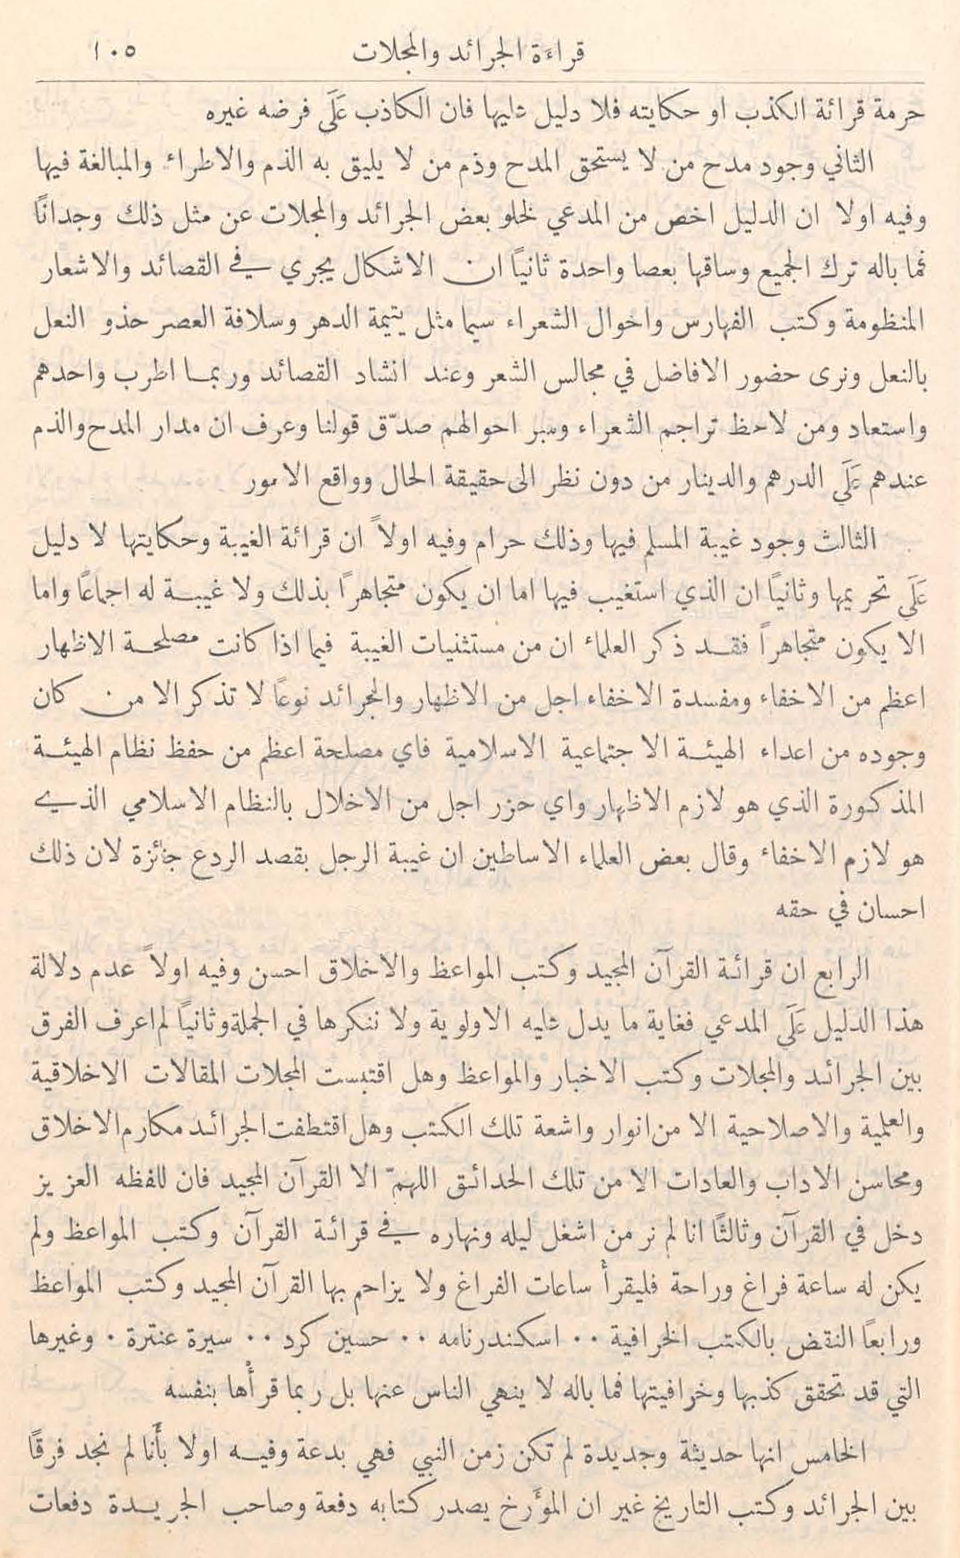 قراءة الجرائد والمجلات ١٠٥
حرمة قرائة الكذب او حكايته فلا دليل عليها فان الكاذب عَلَى فرضه غيره
الثاني وجود مدح من لا يستحق المدح وذم من لا يليق به الذم والاطراء والمبالغة فيها
وفيه اولا ان الدليل اخص من المدعي لخلو بعض الجرائد والمجلات عن مثل ذلك وجدانًا
فما باله ترك الجميع وساقها بعصا واحدة ثانيًا ان الاشكال يجري في القصائد والاشعار
المنظومة وكتب الفهارس واحوال الشعراء سيما مثل يتيمة الدهر وسلافة العصر حذو النعل
بالنعل ونرى حضور الافاضل في مجالس الشعر وعند انشاد القصائد وربما اطرب واحدهم
واستعاد ومن لاحظ تراجم الشعراء وسبر احوالهم صدّق قولنا وعرف ان مدار المدح والذم
عندهم عَلَى الدرهم والدينار من دون نظر الى حقيقة الحال وواقع الامور
الثالث وجود غيبة المسلم فيها وذلك حرام وفيه اولاً ان قرائة الغيبة وحكايتها لا دليل
عَلَى تحريمها وثانيًا ان الذي استغيب فيها اما ان يكون متجاهرًا بذلك ولا غيبة له اجماعًا واما
الا يكون متجاهراً فقد ذكر العلماء ان من مستثنيات الغيبة فيما اذا كانت مصلحة الاظهار
اعظم من الاخفاء ومفسدة الاخفاء اجل من الاظهار والجرائد نوعًا لا تذكر الا من كان
وجوده من اعداء الهيئة الاجتماعية الاسلامية فاي مصلحة اعظم من حفظ نظام الهيئة
المذكورة الذي هو لازم الاظهار واي حزر اجل من الاخلال بالنظام الاسلامي الذي
هو لازم الاخفاء وقال بعض العلماء الاساطين ان غيبة الرجل بقصد الردع جائزة لان ذلك
احسان في حقه
الرابع ان قرائة القرآن المجيد وكتب المواعظ والاخلاق احسن وفيه اولاً عدم دلالة
هذا الدليل عَلَى المدعي فغاية ما يدل عليه الاولوية ولا ننكرها في الجملة وثانيًا لم اعرف الفرق
بين الجرائد والمجلات وكتب الاخبار والمواعظ وهل اقتبست المجلات المقالات الاخلاقية
والعلمية والاصلاحية الا من انوار واشعة تلك الكتب وهل اقتطفت الجرائد مكارم الاخلاق
ومحاسن الاداب والعادات الا من تلك الحدائق اللهمّ الا القرآن المجيد فان للفظه العزيز
دخل في القرآن وثالثًا انا لم نر من اشغل ليله ونهاره في قرائة القرآن وكتب المواعظ ولم
يكن له ساعة فراغ وراحة فليقرأ ساعات الفراغ ولا يزاحم بها القرآن المجيد وكتب المواعظ
ورابعًا النقض بالكتب الخرافية ٠٠ اسكندرنامه ٠٠ حسين كرد ٠٠ سيرة عنترة ٠ وغيرها
التي قد تحقق كذبها وخرافيتها فما باله لا ينهي الناس عنها بل ربما قرأها بنفسه
الخامس انها حديثة وجديدة لم تكن زمن النبي فهي بدعة وفيه اولا بأنا لم نجد فرقًا
بين الجرائد وكتب التاريخ غير ان المؤرخ يصدر كتابه دفعة وصاحب الجريدة دفعات